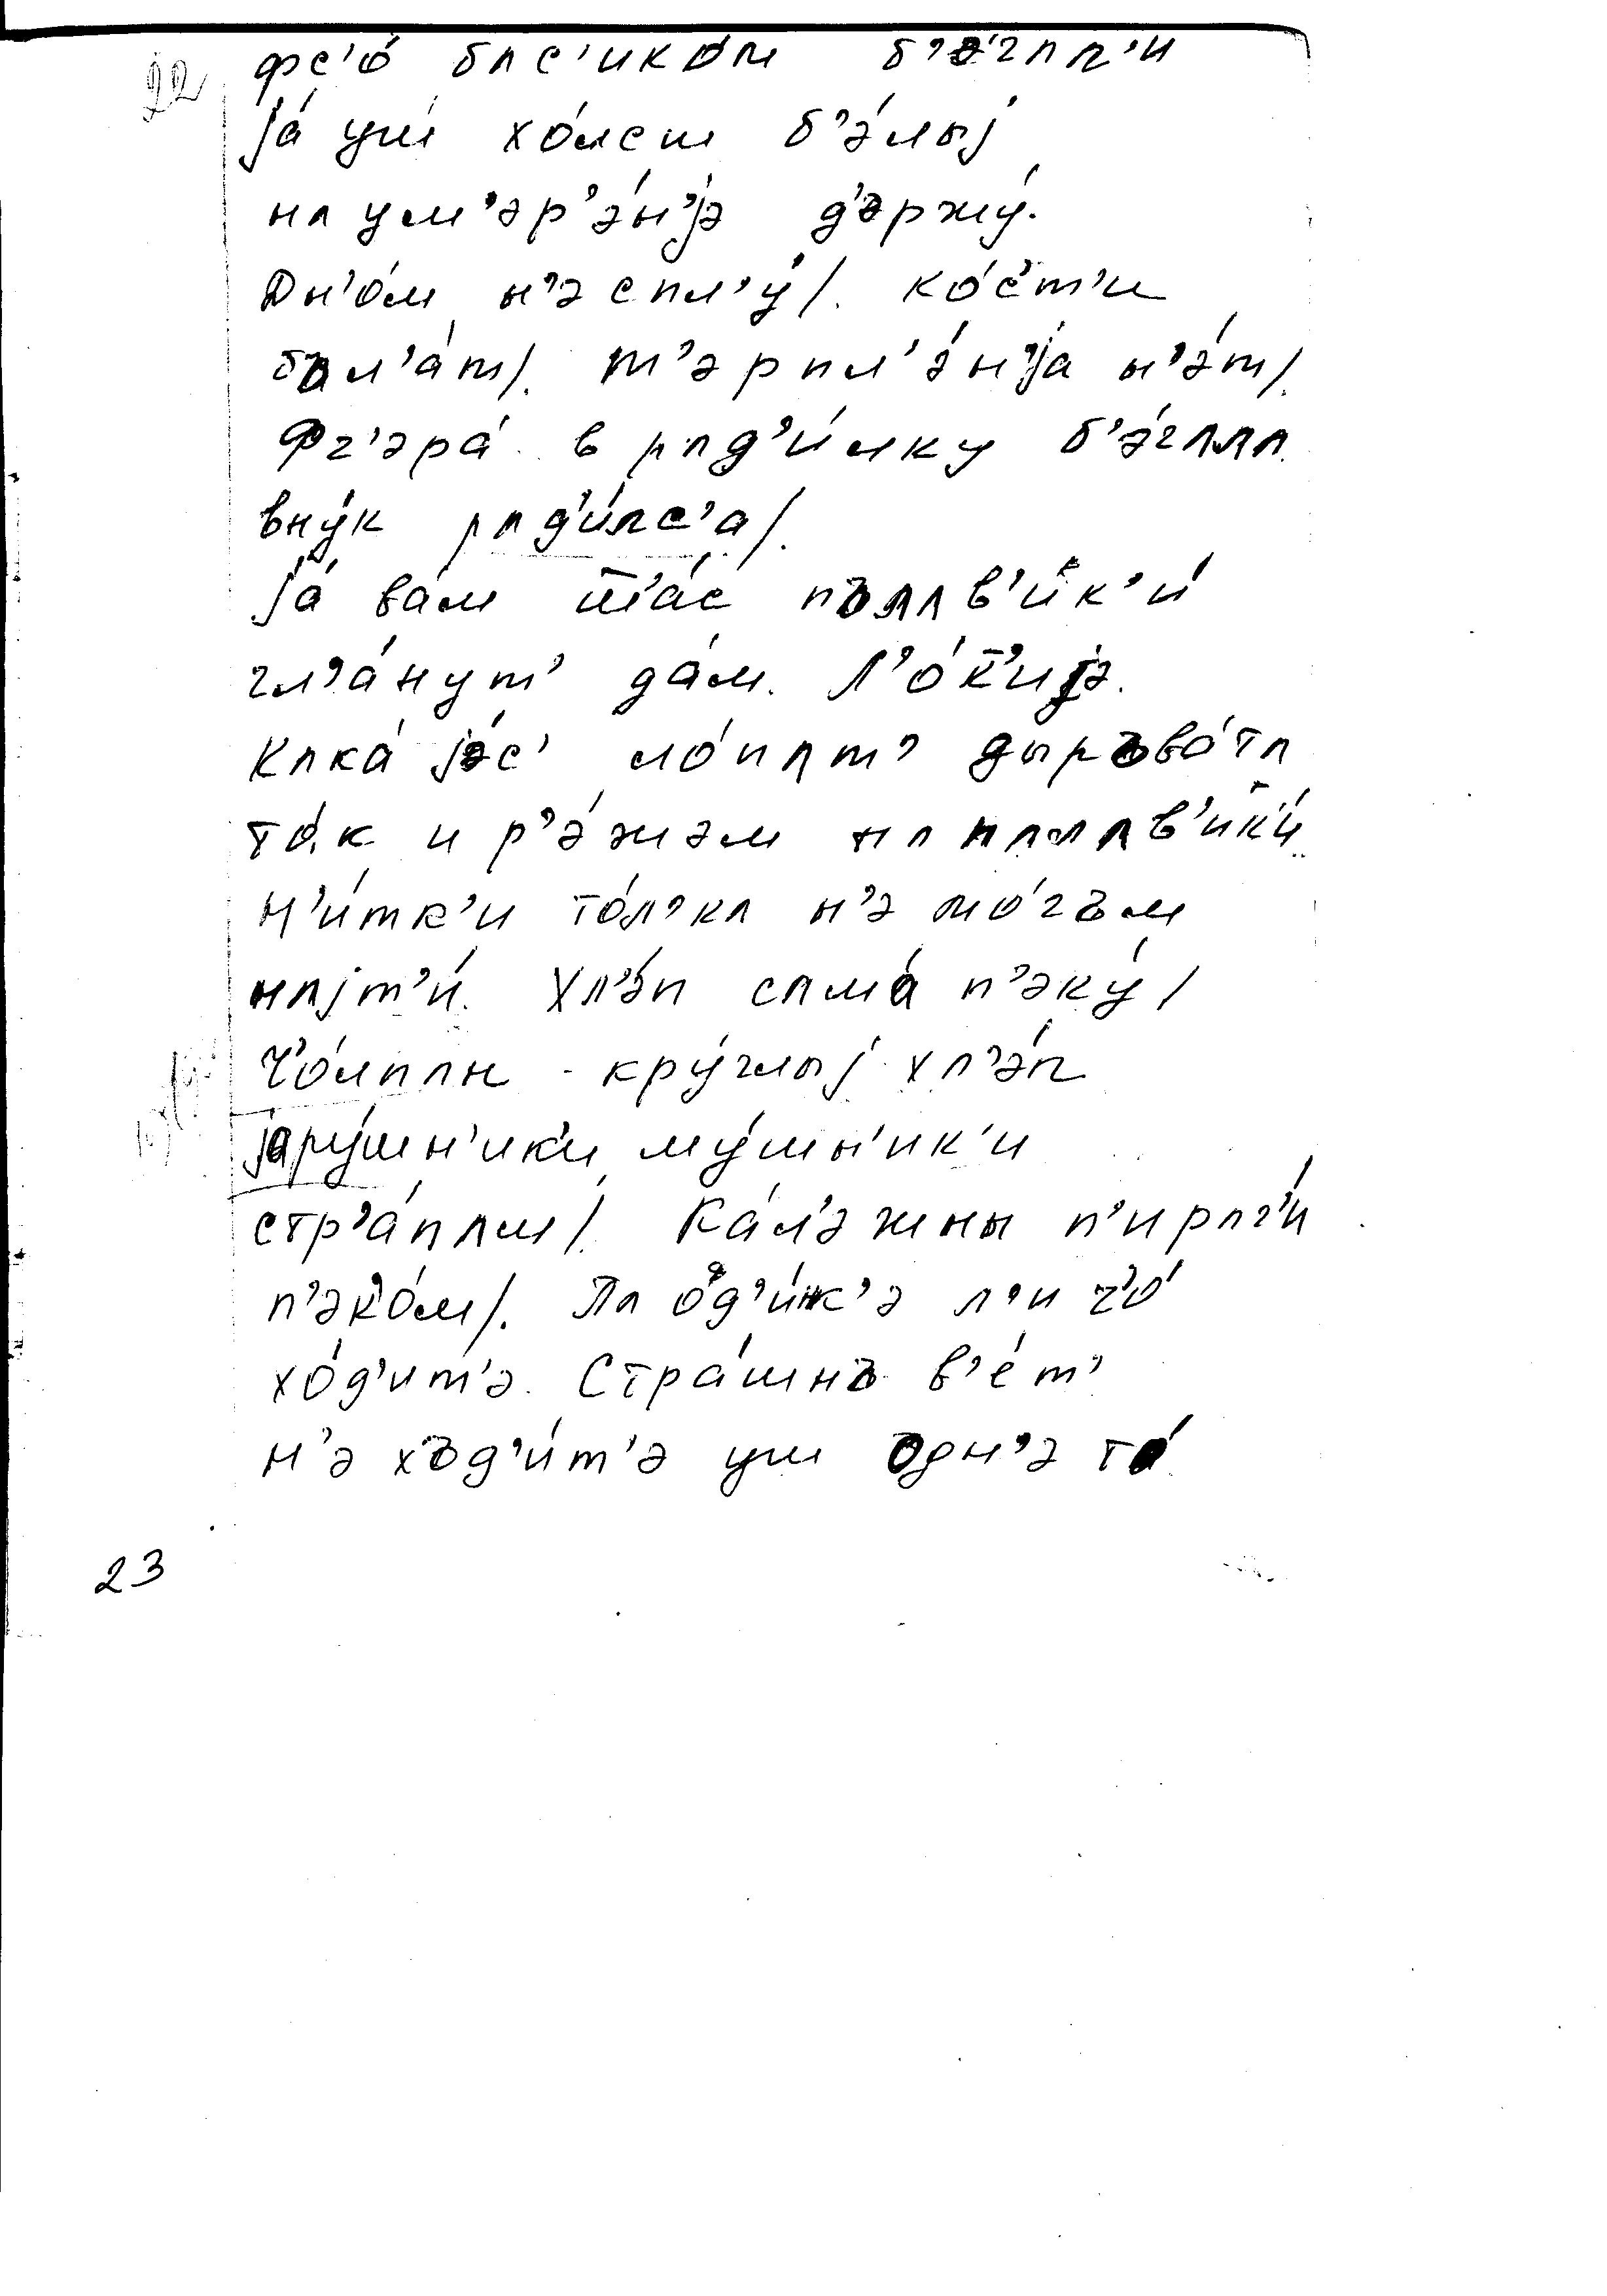 22 фс'о́ бʌс'ико́м б'э́гʌл'и
jа́ уш хо́лст б'э́лыj
нʌ ум'эр'э́н'jэ д'эржу́.
Дн'о́м н'э спл'у́/. ко́с'т'и
бъл'а́т/. т'эрпл'э́н'jа н'э́т/.
Фч'эра́ в рʌд'и́лку б'э́гʌлʌ
вну́к рʌд'и́лс'а/.
jа́ ва́м ш'а́с пълʌв'ик'и́
гл'а́нут' да́м. Л'о́х'иjэ.
Кʌка́ jэ́с' ло́пʌт' дыръва́тʌ
та́к и р'э́жэм нʌ пʌлʌв'ик'и́
Н'и́тк'и то́л'кʌ н'э мо́гъм
нʌjт'и́. Хл'э́п сʌма́ п'эку́/
Ч'о́лпʌн - кру́глыj хл'э́п
jару́шн'ик'и му́шн'ик'и
стр'а́пʌм/. Ка́л'эжны п'ирʌг'и́
п'эко́м/. Пʌ о́д'инк'э л'и ч'о́
хо́д'ит'э. Стра́шнъ в'е́т'
н'э хъд'и́т'э уш одн'э та́
23